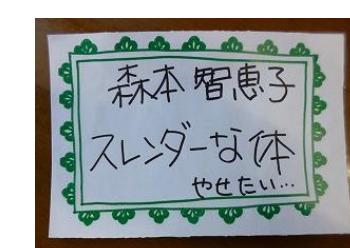 森本 智恵子
スレンダーな体
やせたい…